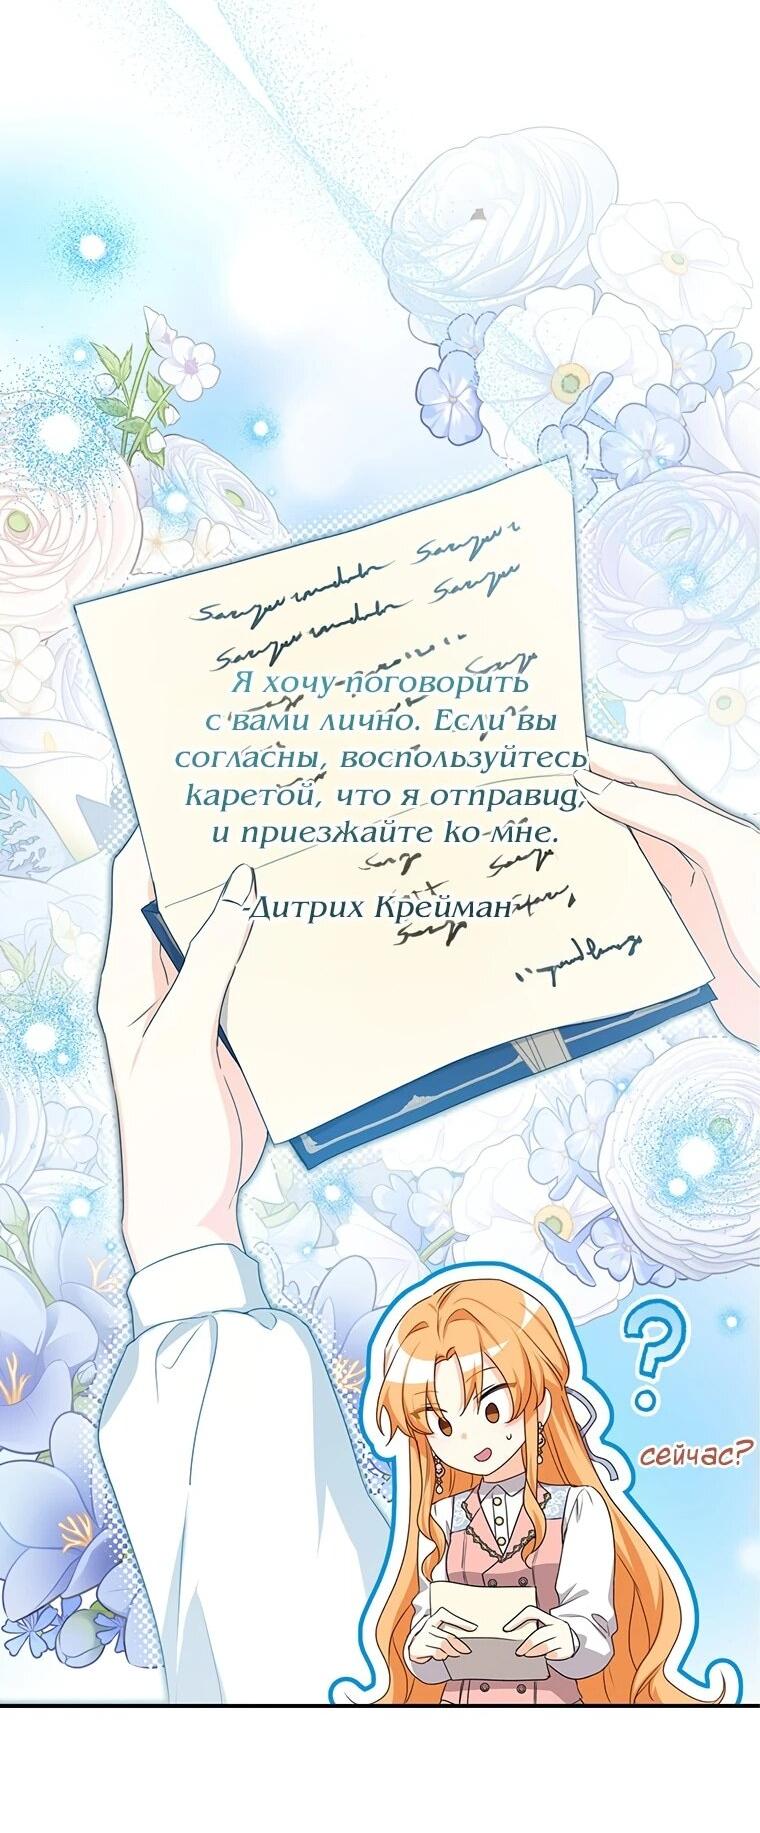 Я хочу поговорить
с вами лично. Если вы
согласны, воспользуйтесь
каретой, что я отправил,
и приезжайте ко мне.
-Дитрих Крейман
?
сейчас?